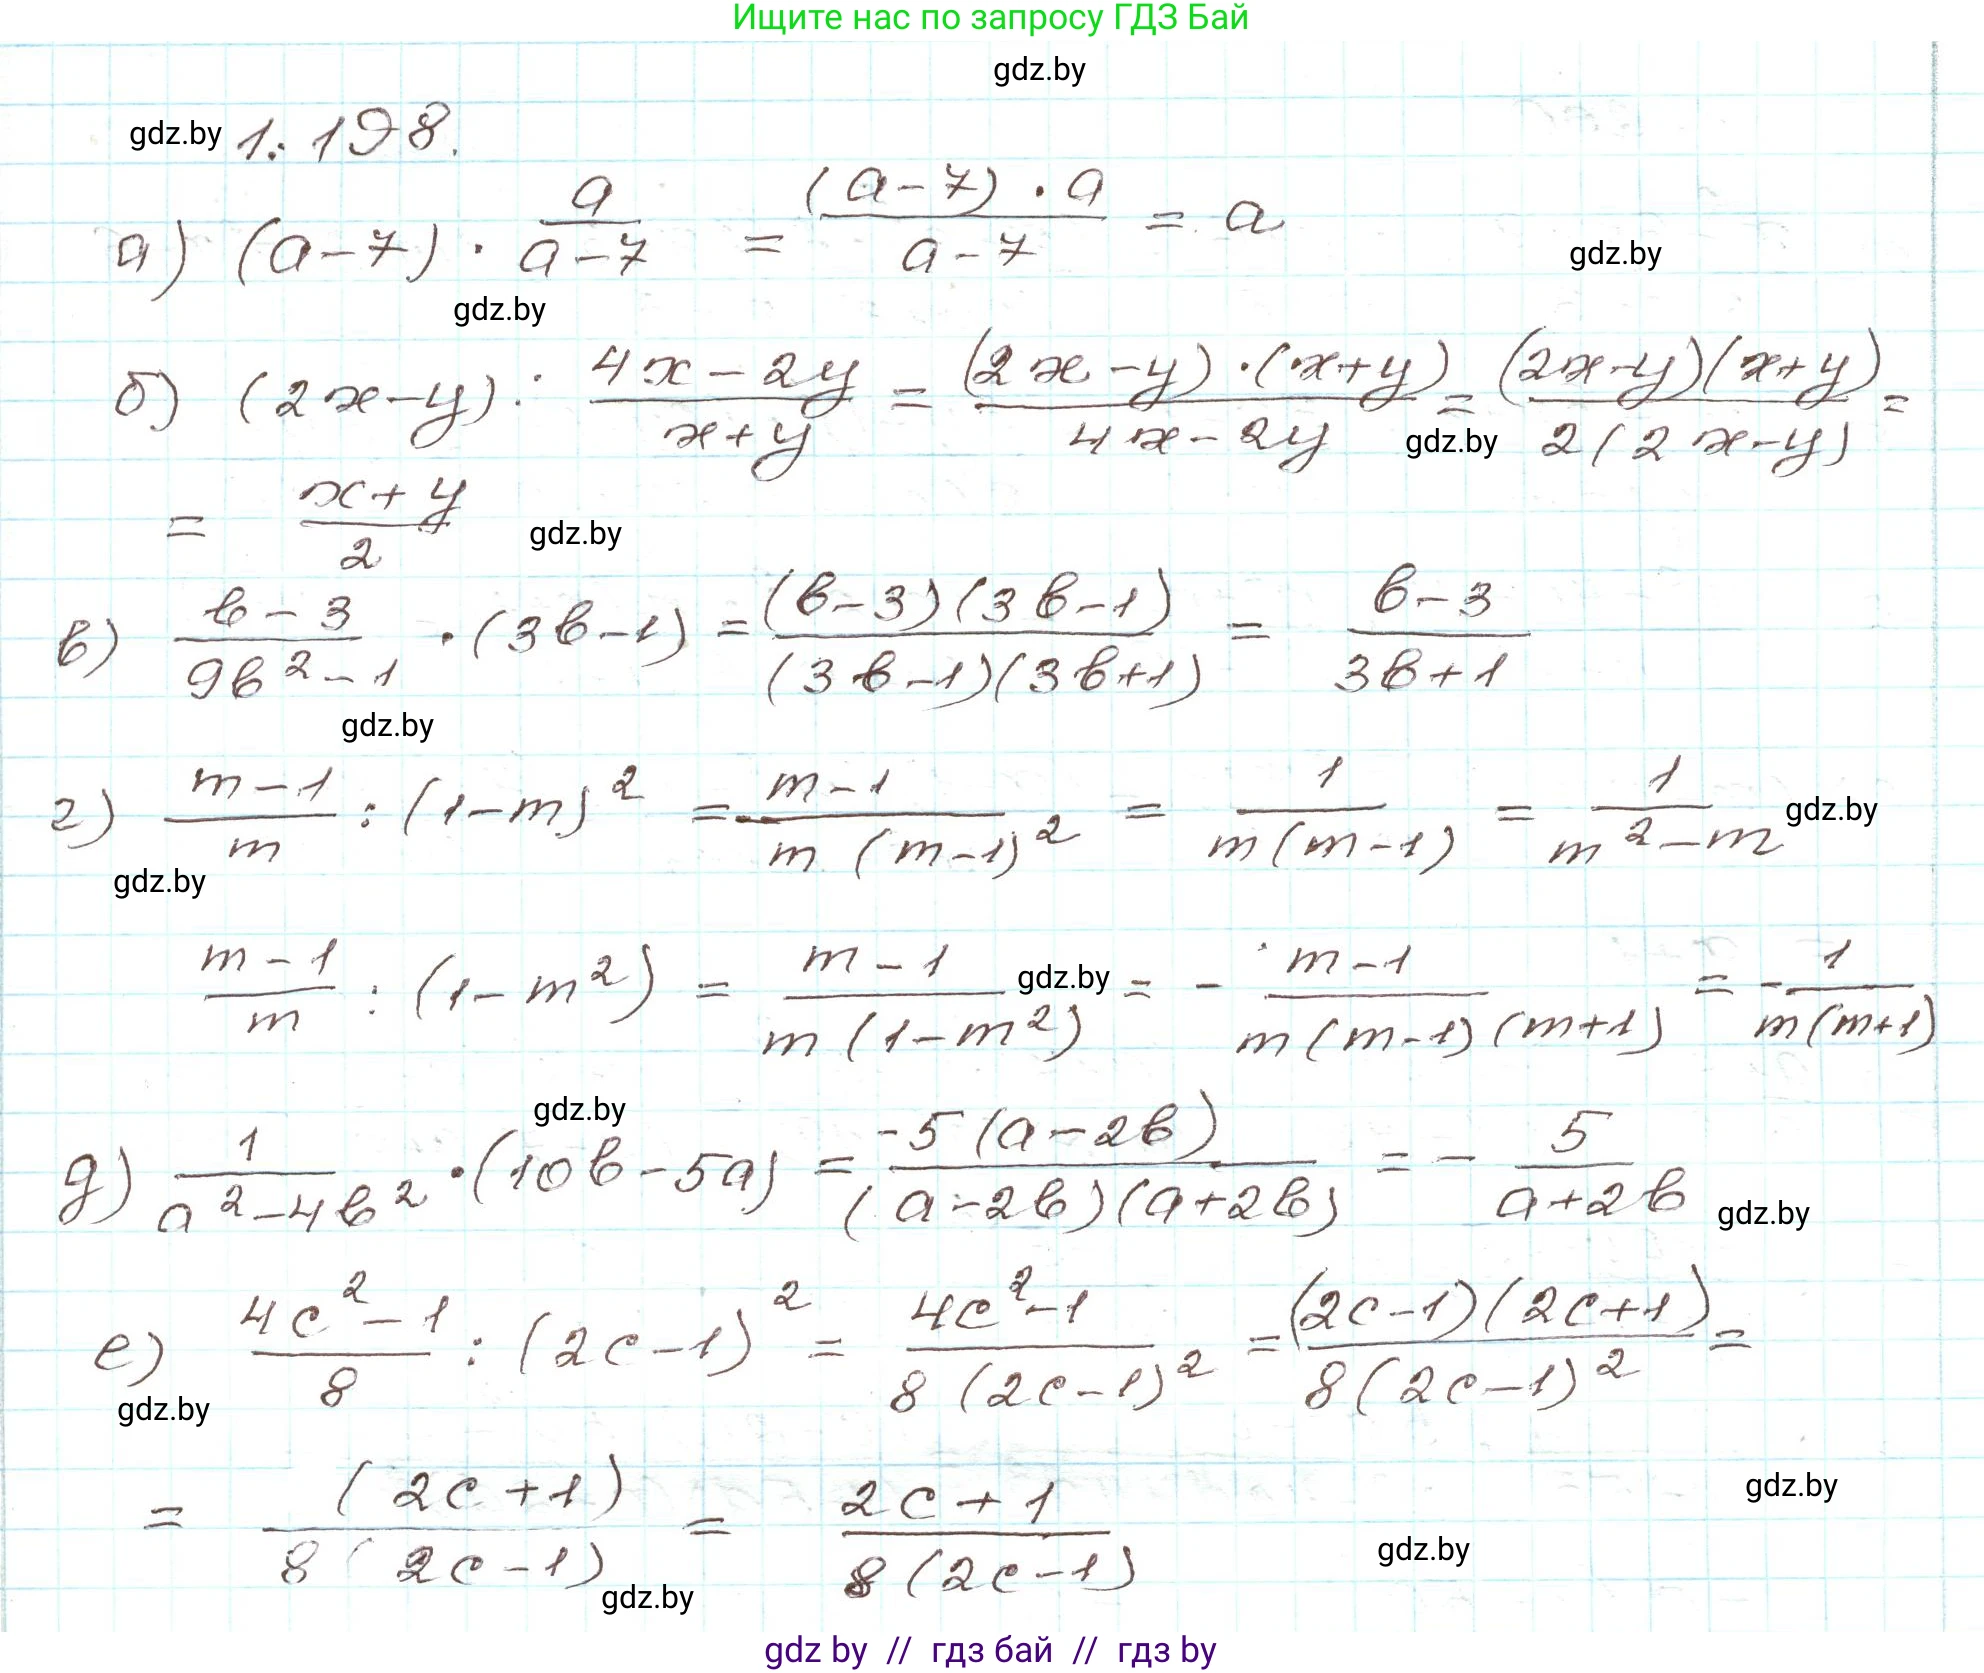 Ищите нас по запросу ГДЗ Бай
gdz.by
gdz.by 1.198.
а) (a-7) · a/(a-7) = ((a-7)·a)/(a-7) = a
gdz.by
gdz.by
б) (2x-y) : (4x-2y)/(x+y) = ((2x-y)·(x+y))/(4x-2y) = ((2x-y)(x+y))/(2(2x-y)) =
gdz.by
= (x+y)/2
gdz.by
в) (b-3)/(9b²-1) · (3b-1) = ((b-3)(3b-1))/((3b-1)(3b+1)) = (b-3)/(3b+1)
gdz.by
г) (m-1)/m : (1-m)² = (m-1)/(m(m-1)²) = 1/(m(m-1)) = 1/(m²-m)
gdz.by
gdz.by
(m-1)/m : (1-m²) = (m-1)/(m(1-m²)) = -(m-1)/(m(m-1)(m+1)) = -1/(m(m+1))
gdz.by
gdz.by
д) 1/(a²-4b²) · (10b-5a) = (-5(a-2b))/((a-2b)(a+2b)) = -5/(a+2b)
gdz.by
е) (4c²-1)/8 : (2c-1)² = (4c²-1)/(8(2c-1)²) = ((2c-1)(2c+1))/(8(2c-1)²) =
gdz.by
= (2c+1)/(8(2c-1)) = (2c+1)/(8(2c-1))
gdz.by
gdz.by
gdz.by
gdz by // гдз бай // гдз by